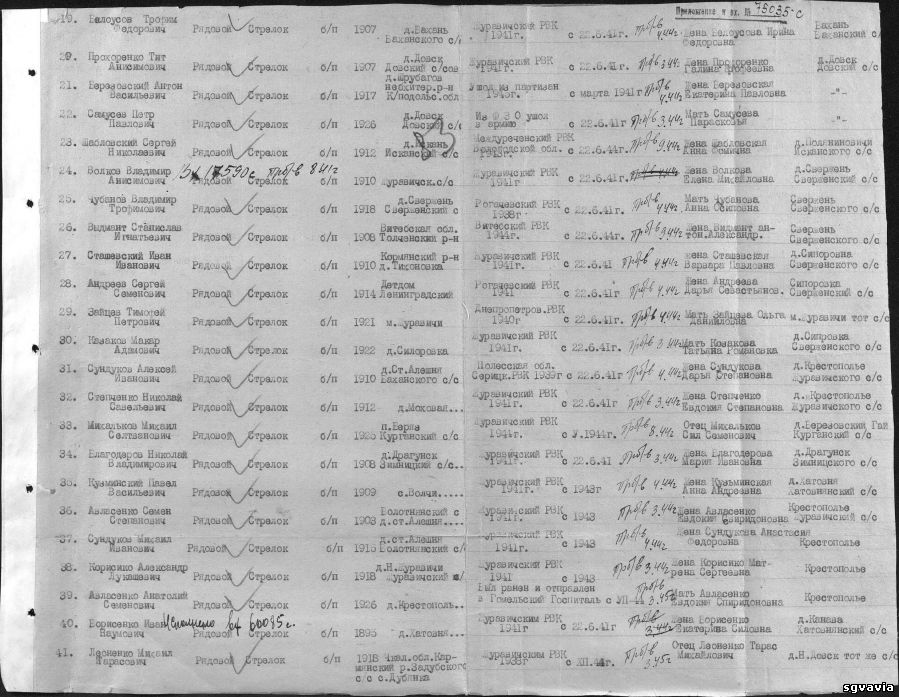 Приложение к вх. № 75035-с
19. Белоусов Трофим Федорович Рядовой Стрелок б/п 1907 д.Вахань Ваханского с/с Журавичский РВК 1941г. с 22.6.41г. пр/в 4.44г Жена Белоусова Ирина Федоровна Вахань Ваханский с/с
20. Прохоренко Тит Анисимович Рядовой Стрелок б/п 1907 д.Довск Довский с/сов Журавичский РВК 1941г. с 22.6.41г. пр/в 3.44г Жена Прохоренко Галина д.Довск Довский с/с
21. Березовский Антон Васильевич Рядовой Стрелок б/п 1917 К/подольс.обл Ушел из партизан 1943г. с марта 1941г пр/в 4.44г Жена Березовская Екатерина Павловна -"-
22. Самусев Петр Павлович Рядовой Стрелок б/п 1926 д.Довск Довский с/с Из Ф З О ушел в армию с 22.6.41г пр/в 3.44г Мать Самусева Парасковья -"-
23. Шабловский Сергей Николаевич Рядовой Стрелок б/п 1912 д.Искань Исканский с/с Междуреченский РВК Вологодской обл. с 22.6.44г. пр/в 9.44г Жена Шабловская Анна Фомична Исканского с/с
24. Волков Владимир Анисимович пр/в 8.41г Рядовой Стрелок б/п 1910 Журавичск.с/с Журавичский РВК 1941г. с 22.6.41г. Жена Волкова Елена Михайловна д.Свержень Сверженский с/с
25. Чубанов Владимир Трофимович Рядовой Стрелок б/п 1918 д.Свержень Сверженский с Рогачевский РВК 1938г с 22.6.41г. пр/в 4.44г Мать Чубанова Анна Осиповна Свержень Сверженского с/с
26. Выдмант Станислав Игнатьевич Рядовой Стрелок б/п 1908 Витебская обл. Толченский р-н Витебский РВК 1944г. с 22.6.44г. пр/в 9.44г Жена Видмант Антон.Александр. Свержень Сверженского с/с
27. Сташевский Иван Иванович Рядовой Стрелок б/п 1910 Кормянский р-н д.Тихоновка Журавичский РВК 1941г. с 22.6.41 пр/в 4.44г Жена Сташевская Варвара Павловна д.Сипоровка Сверженского с/с
28. Андреев Сергей Семенович Рядовой Стрелок б/п 1914 Детдом Ленинградский Рогачевский РВК 1941 с 22.6.41г. пр/в 4.44г Жена Андреева Дарья Севастьянов. Сипоровка Сверженский с/с
29. Зайцев Тимофей Петрович Рядовой Стрелок б/п 1921 м.Журавичи Днепропетров.РВК 1940г с 22.6.41г. пр/в 4.44г Мать Зайцева Ольга Даниловна м.Журавичи тот с/с
30. Казаков Макар Адамович Рядовой Стрелок б/п 1922 д.Сипоровка Журавичский РВК 1941г. с 22.6.41г. пр/в 3.44г Мать Козакова Татьяна Романовка д.Сипровка Сверженского с/с
31. Сундуков Алексей Иванович Рядовой Стрелок б/п 1910 д.Ст.Алешня Ваханского с/с Полесская обл. РВК 1939г с 22.6.41г пр/в 4.44г Жена Сундукова Дарья Степановна д.Крестополье Журавичского с/с
32. Степченко Николай Савельевич Рядовой Стрелок б/п 1912 д.Моховая... Журавичский РВК 1941г. с 22.6.41г пр/в 3.44г Жена Степченко Евдокия Степановна д. Крестополье Журавичского с/с
33. Михальков Михаил Селтванович Рядовой Стрелок б/п 1925 Курганский с/с Журавичский РВК 1944г. с У.1944г. пр/в 8.44г Отец Михальков Сил Семенович д.Березовский Гай Курганский с/с
34. Благодеров Николай Владимирович Рядовой Стрелок б/п 1908 д.Драгунск Зимницкий с/с... Журавичский РВК 1941г. с 22.6.41 пр/в 3.44г Жена Благодерова Мария Ивановна д.Драгунск Зимницкого с/с
35. Кузминский Павел Васильевич Рядовой Стрелок б/п 1909 с.Волчи..... Журавичский РВК 1941г. с 1943г пр/в 4.44г Жена Кузьминская Анна Андреевна д.Хатовня Хатовнянский с/с
36. Авласенко Семен Степанович Рядовой Стрелок б/п 1903 Волотнянский с д.ст.Алешня... Журавичский РВК 1941г. с 1943 пр/в 3.44г Жена Авласенко Евдокия Свиридоновна Крестополье Журавичский с/с
37. Сундуков Михаил Иванович Рядовой Стрелок б/п 1915 д.ст.Алешня Волотнянский с/с Журавичский РВК 1941г. с 1943 пр/в 4.44г Жена Сундукова Анастасия Федоровна Крестополье
38. Корисико Александр Лукашевич Рядовой Стрелок б/п 1918 д.Н.Журавичи Журавичский с/с Журавичский РВК 1941 с 1943 пр/в 3.44г Жена Корисико Матрена Сергеевна Крестополье
39. Авласенко Анатолий Семенович Рядовой Стрелок б/п 1926 д.Крестополь.. Был ранен и отправлен в Гомельский Госпиталь с УП-44 пр/в 3.45г Мать Авласенко Евдокия Спиридоновна Крестополье
40. Борисенко Иван Наумович Исключено вх 60085г. Рядовой Стрелок б/п 1895 д.Хатовня... Журавичским РВК 1941г с 22.6.41г пр/в 3.44г Жена Борисенко Екатерина Силовна д.Канава Хатовнянский с/с
41. Леоненко Михаил Тарасович Рядовой Стрелок б/п 1918 Чкал.обл. р.Задубского с/с с.Дубинка Журавичским РВК 1938г с ХП.44г. пр/в 3.45г Отец Леоненко Тарас Михайлович д.Н.Довск тот же с/с
sgvavia